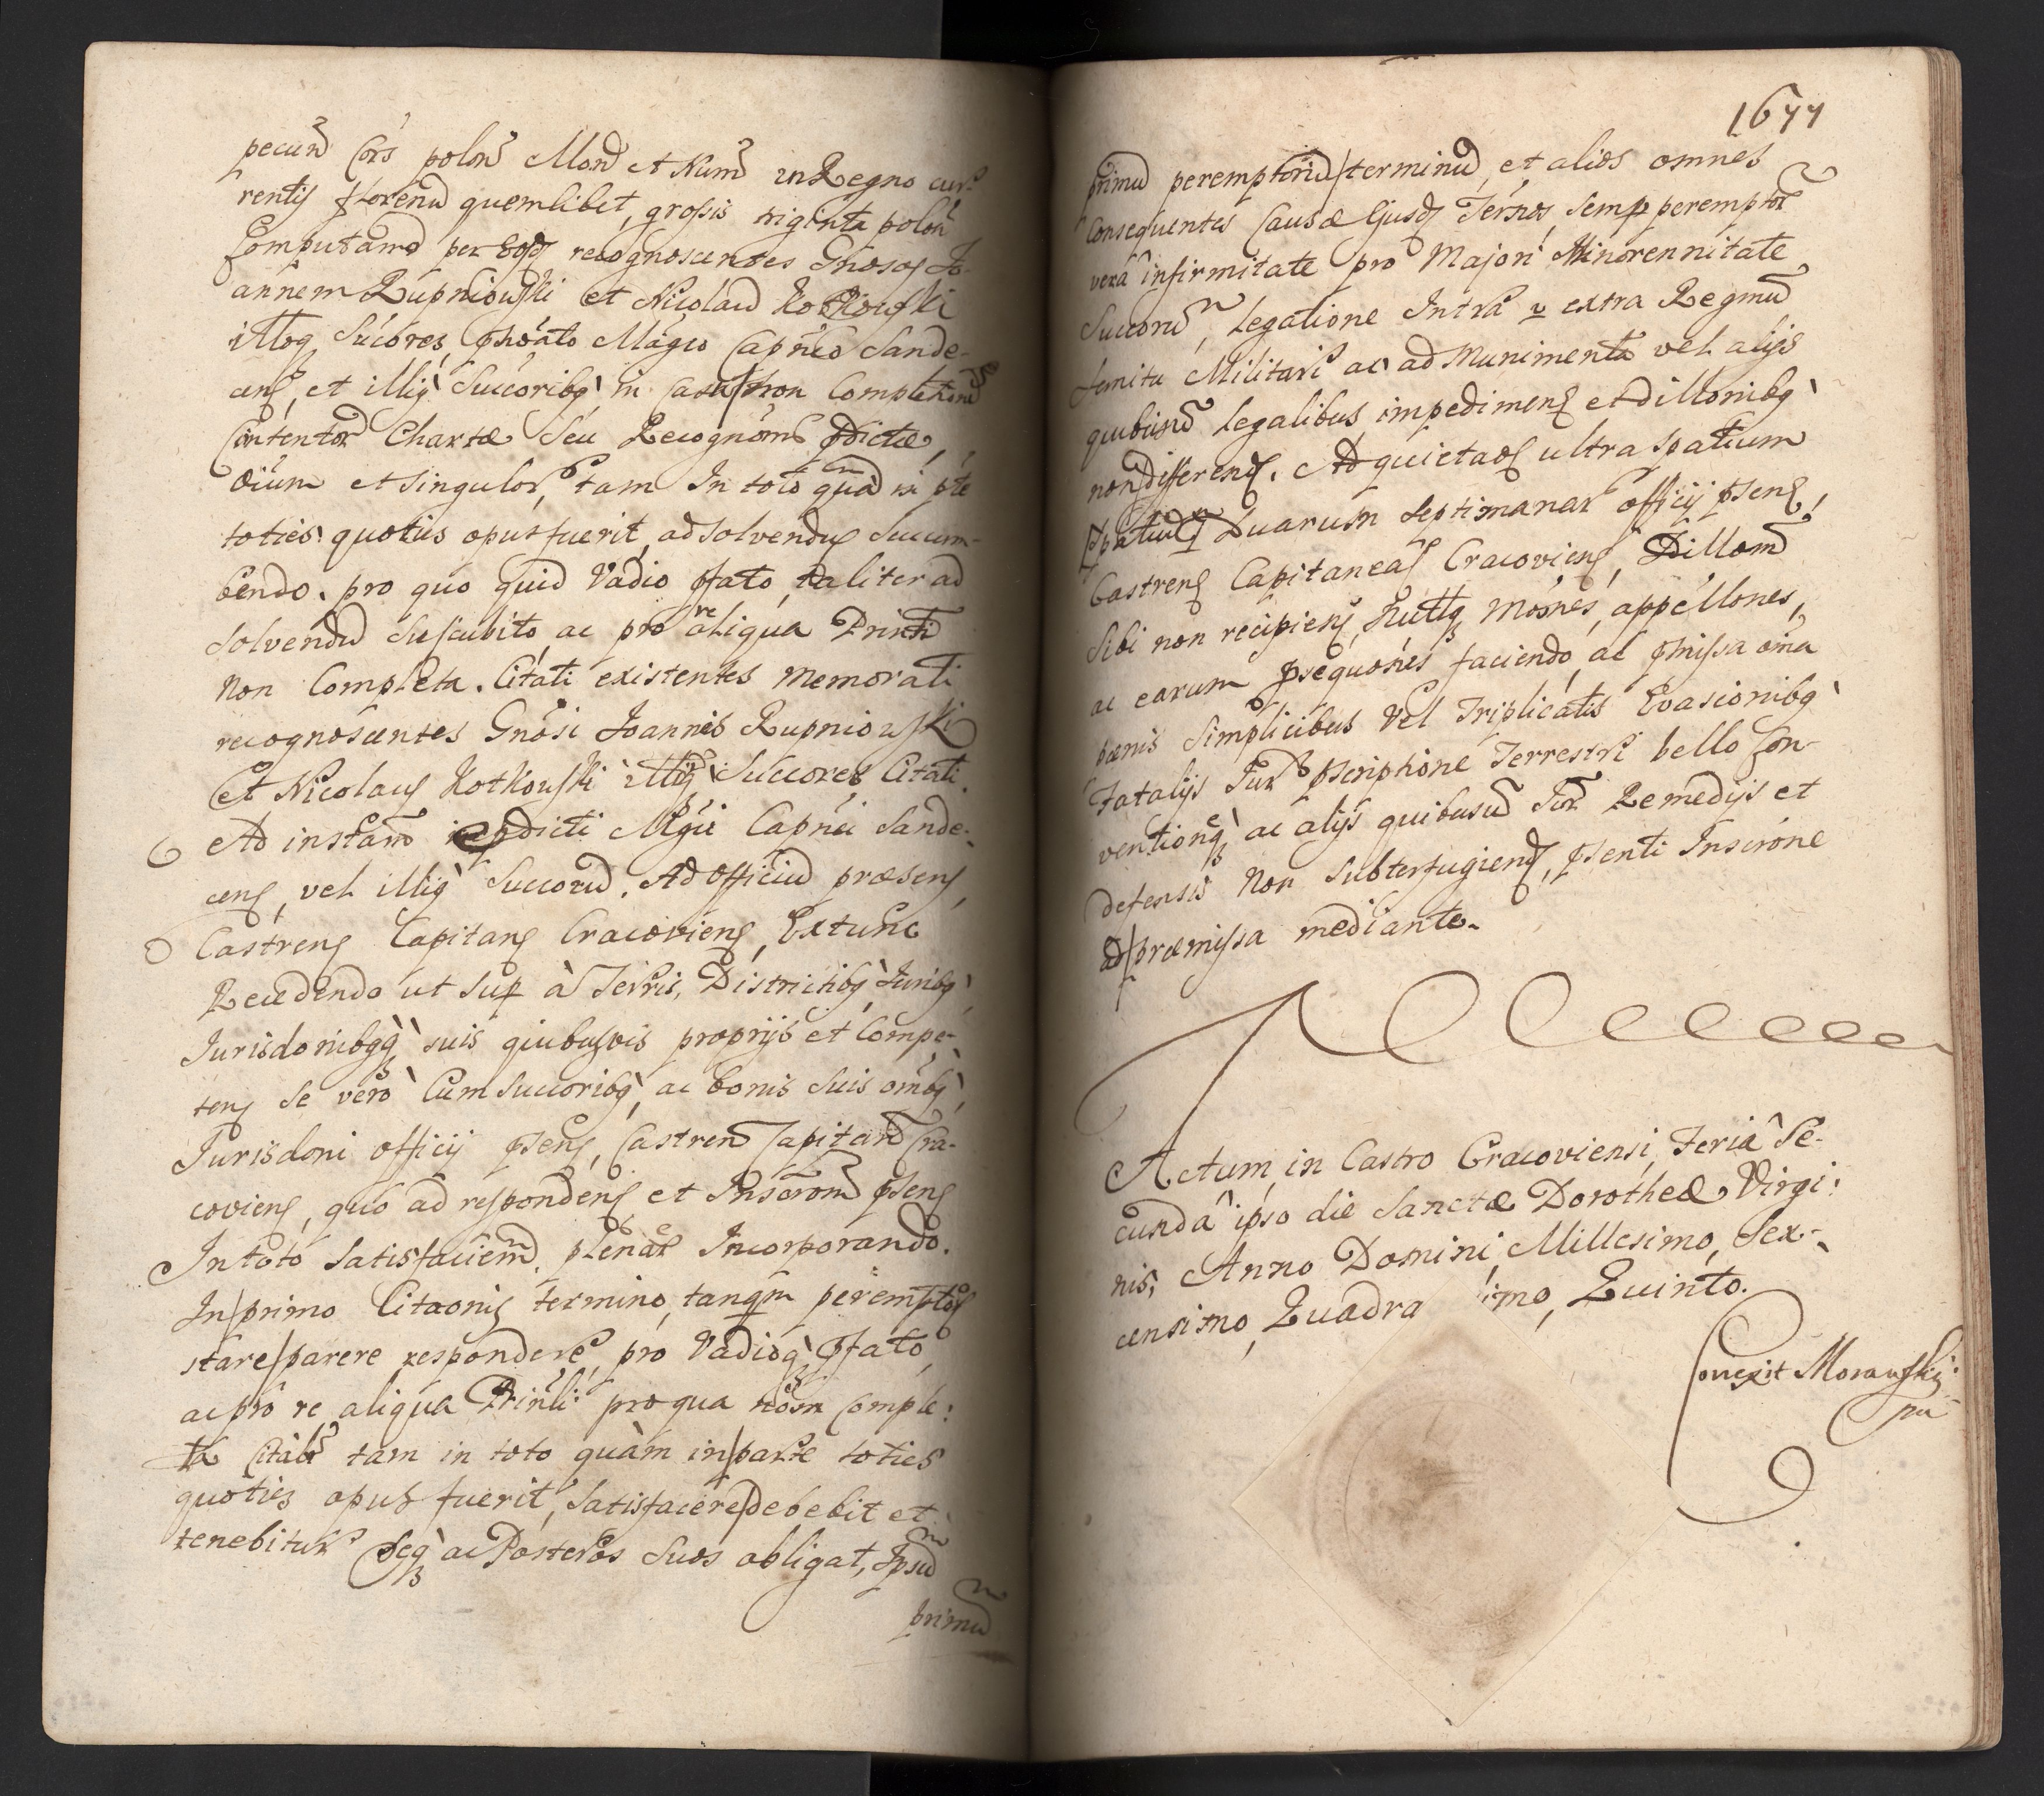 pecun̄ cors polon̄ Mon̄ et Num̄ in Regno cur-
rentiȷ florenū quemlibet, grossis triginta polon̄
Computan̄d per Eosdȝ recognoscentes Gnosos Jo-
annem Rupniowski et Nicolaū Kotkowski
illoȝ Sucōres, phōato Mag̃co Capn̄eo Sande-
cenȝ, et illiȝ Succoribȝ in Casu non Completion̄
Contentor̄ Chartæ Seu Recognōnis pdictæ,
oiūm et singulor̄, tam In toto quā in pte
toties quoties opus fuerit, ad solvendū Succum-
bendo. pro quo quid Vadio pfato, taliter ad
Solvendū Suscubito, ac pro re aliqua Prin̄ti
non Completa. Citati existentes memorati
recognoscentes Gnōsi Joannes Rupniowski
Et Nicolaus Kotkowski illiȝ Succores, Citati.
Ad instan̄ pdicti Mgci Capn̄ei Sande-
cenȝ, vel illiȝ Succorū. Ad Officiū præsenȝ
Castrenȝ Capitanȝ Cracovienȝ, Extunc
Recedendo ut sup à Terris, Districtibȝ, Juribȝ,
Jurisdōnibȝqȝ suis quibusvis proprijs et Compe-
tenȝ Se verò Cum Succoribȝ, ac bonis Suis om̄ibȝ,
Jurisdōni officij psenȝ, Castren̄ Capitan̄ Cra-
covienȝ, quò ad respondenȝ et Inscrōm̄ psenȝ
In toto satisfacien̄d, plenar̄ Incorporando.
In primo Citaōnis termino, tanqm̄ perempto𝔯
stare parere respondere, pro Vadioqȝ pfato,
ac pro re aliqua Prin̄li pro qua nōn comple:
ta Citabr̄ tam in toto quàm in parte toties
quoties opus fuerit, satisfacere debebit et
tenebitur Seqȝ ac Posteros Suos obligat, Ipsū
primū
1677
primū peremptoriū terminū, et alios omnes
Consequentes Causæ Ejusdȝ Ternos, Semp peremptor̄
vera infirmitate pro Majori Minorennitate
Succorū, Legatione Intra v extra Regnū
femitu Militari ac ad Munimenta vel alijs
quibusū legalibus impedimenȝ et dillōnibȝ
non differenȝ. Ad quietadȝ ultra spatium
Spatiū Duarum Septimanar̄ officij psenȝ,
Castrenȝ Capitaneaȝ Cracovienȝ, Dillom̄
Sibi non recipienȝ, Nullȝ mōnes, appellōnes,
ac earum psequōnes faciendo, ac pmissa om̄ia
pænis Simplicibus Vel Triplicatis Evasionibȝ
Fatalijs Jur pscriptione Terrestri bello Con-
ventionȝ ac alijs quibusū Jur Remedijs et
defensis non Subterfugienȝ, psenti Inscrōne
ad præmissa mediante.
Actum in Castro Cracoviensi, Feriâ Se-
cundâ ipso die Sanctæ Dorotheæ Virgi:
nis, Anno Domini Millesimo, Sex-
censimo, Quadra imo, Quinto.
Correxit Morawski:
mp